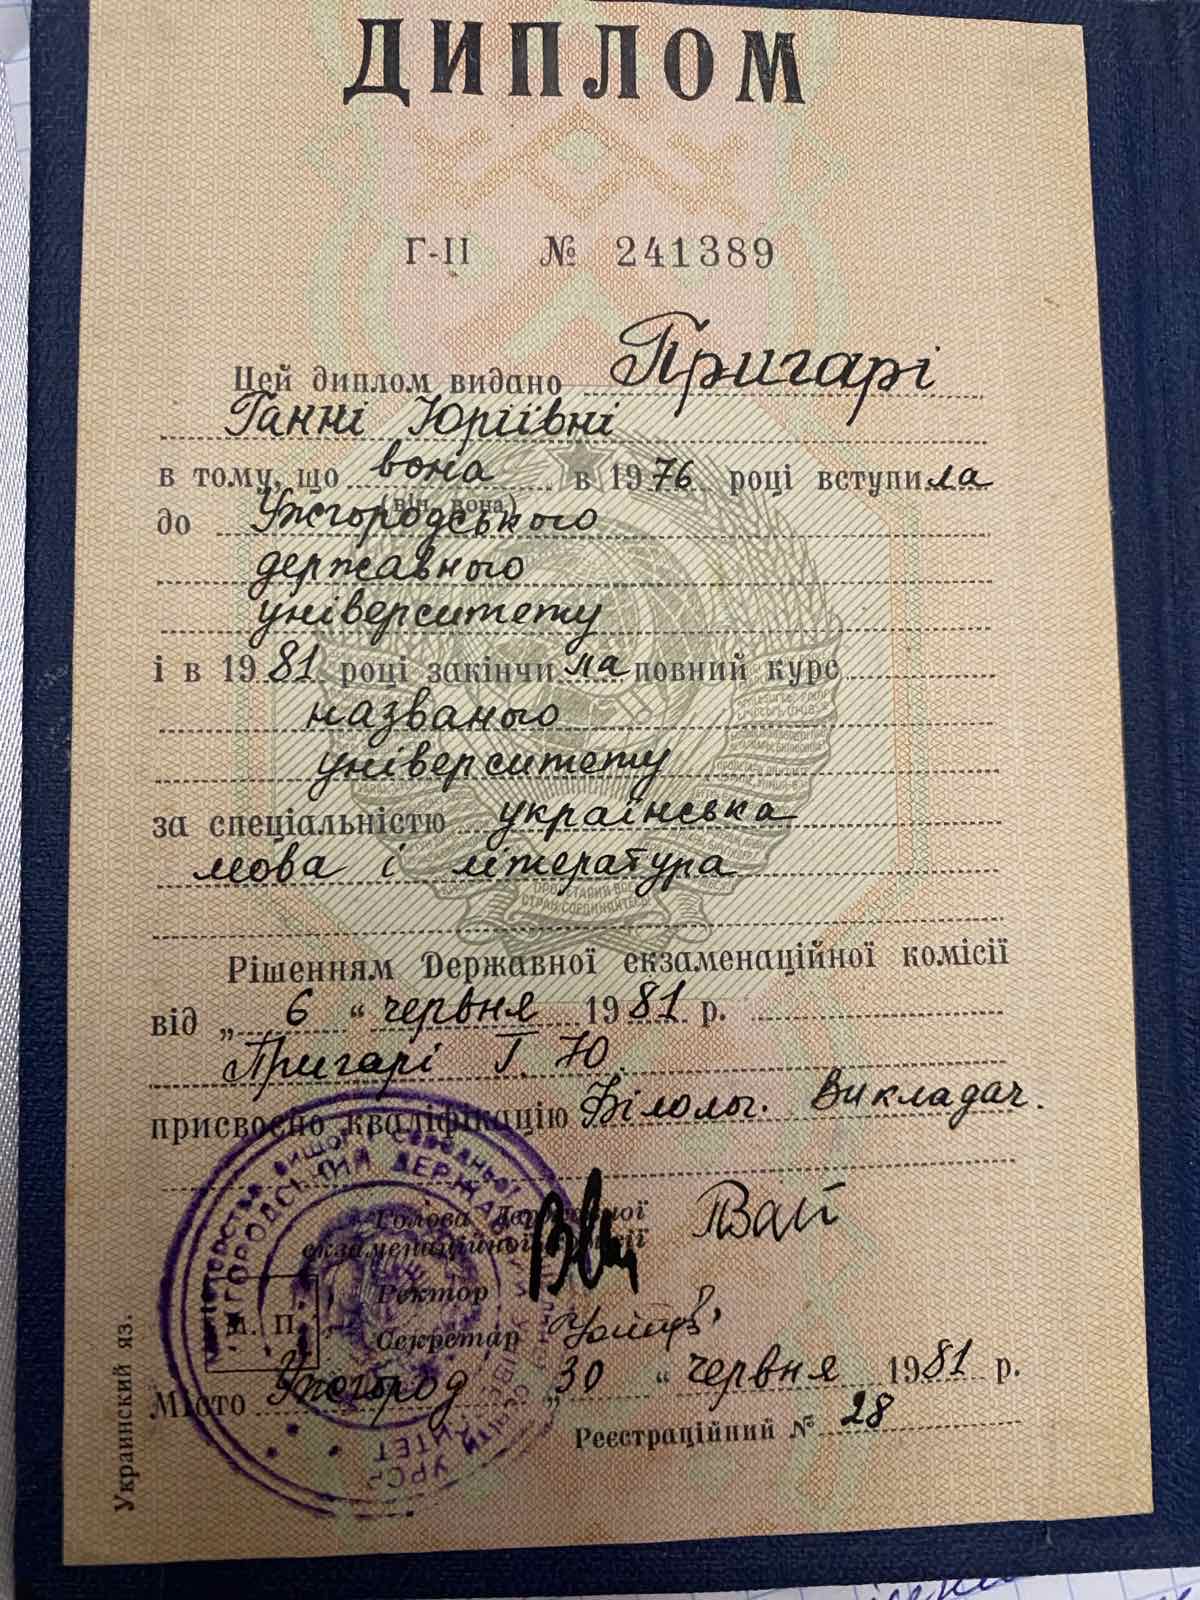 ДИПЛОМ
Г-II № 241389
Цей диплом видано Пригарі
Ганні Юріївні
в тому, що вона в 1976 році вступила
(він, вона)
до Ужгородського
державного
університету
і в 1981 році закінчила повний курс
названого
університету
за спеціальністю українська
мова і література
Рішенням Державної екзаменаційної комісії
від „6“ червня 1981 р.
Пригарі Г. Ю.
присвоєно кваліфікацію Філолог. Викладач.
Голова Державної
екзаменаційної комісії
Ректор
Секретар
М. П.
Місто Ужгород „30“ червня 1981 р.
Реєстраційний № 28
Украинский яз.